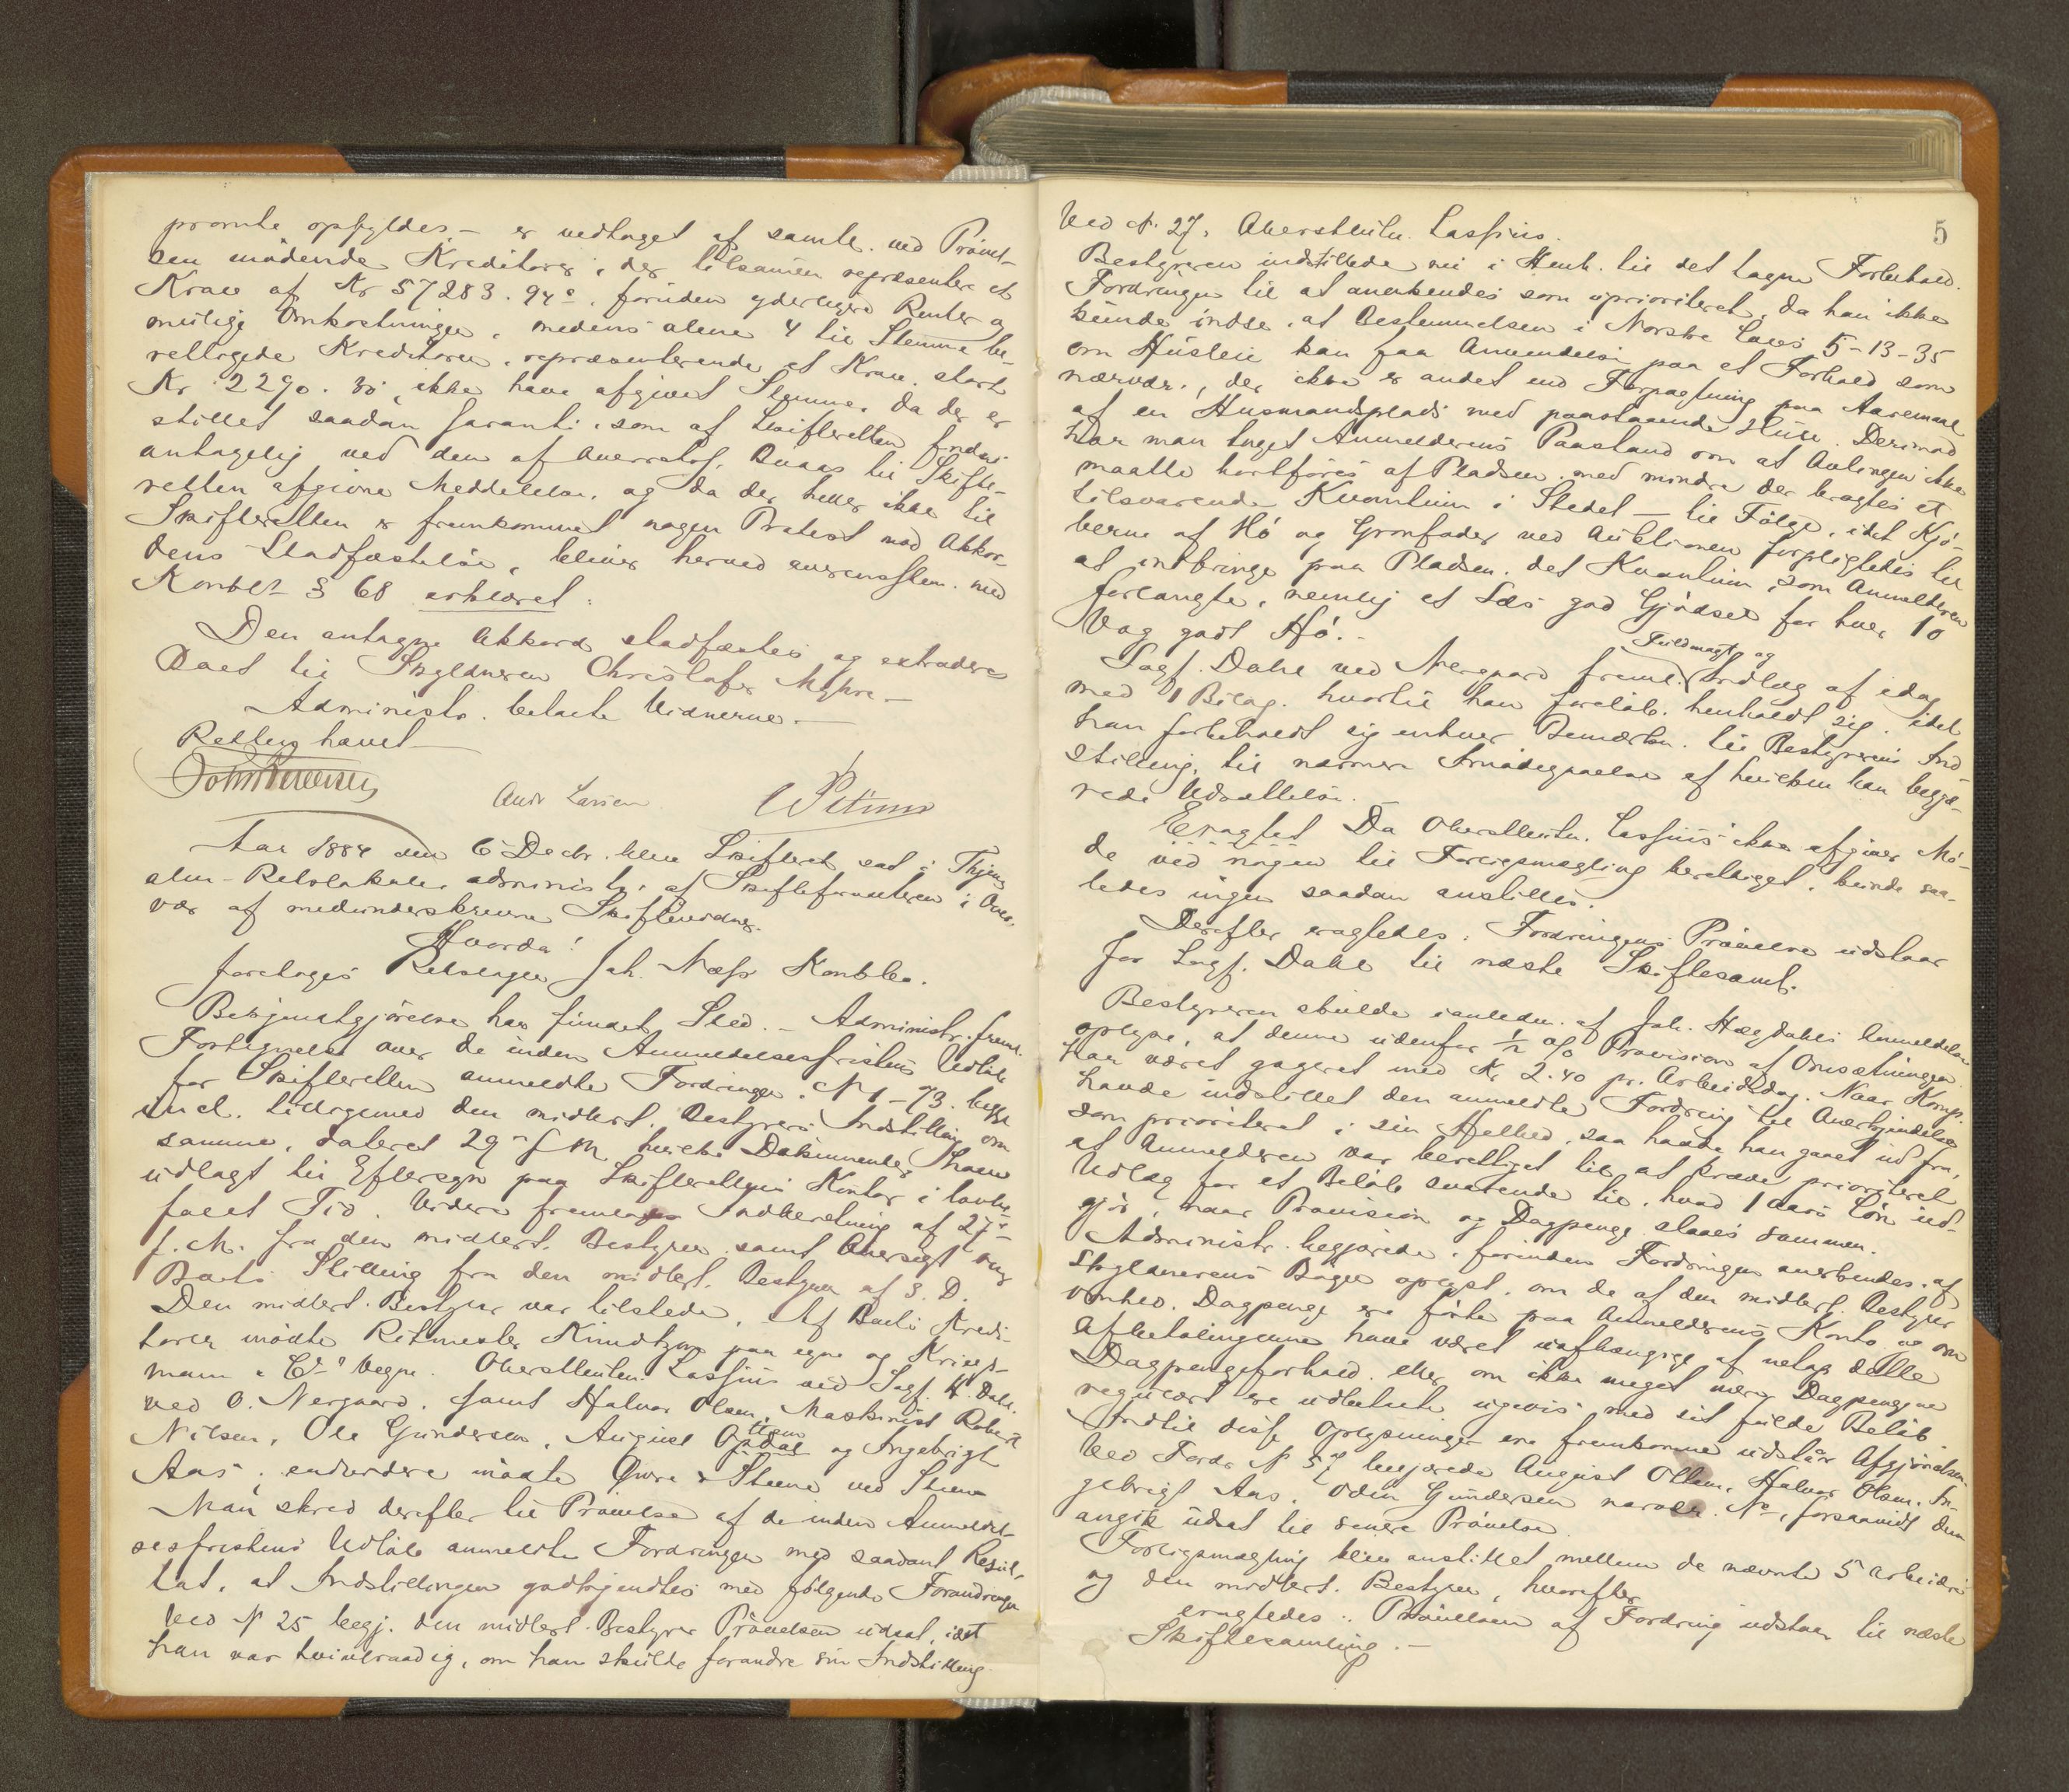 promte opfyldes – er vedtaget af samtl. ved Prøvel-
sen mødende Kreditorer, der tilsammen repræsentere et
Krav af Kr 57283.94 ø, foruden yderligere Renter og
mulige Omkostninger, medens alene 4 til Stemme be-
rettigede Kreditorer, repræsenterende et Krav, stort
Kr. 2290.30, ikke have afgivet Stemme, da der er
stillet saadan Garanti, som af Skifteretten findes
antagelig ved den af Overretssf. Buaas til Skifte-
retten afgivne Meddelelse, og da der heller ikke til
Skifteretten er fremkommet nogen Protest mod Akkor-
dens Stadfæstelse, bliver herved overensstem. med
Konkl. § 68 erklæret:
Den antagne Akkord stadfæstes og extraderes
Boet til Skyldneren Christofer Myhre. –
Administr. betalte Vidnerne. –
Retten hævet –
Andr Larsen
Aar 1884 den 6 Decbr. blev Skifteret sat i Thjems
alm. Retslokale, administr. af Skifteforvalteren i Over-
vær af medunderskrevne Skiftevidner.
Hvorda!
foretoges Retssagen Joh. Næss Konkbo.
Bekjendtgjørelse har fundet Sted. – Administr. freml.
Fortegnelse over de inden Anmeldelsesfristens Udløb
for Skifteretten anmeldte Fordringer, N 1–73, begge
incl. tilligemed den midlert. Bestyrers Indstilling om
samme, dateret 29 f. M. hvilke Dokumenter have
udlagt til Eftersyn paa Skifterettens Kontor i lovbe-
falet Tid. Videre fremlagdes Indberetning af 27
f. M. fra den midlert. Bestyrer samt Oversigt over
Boets Stilling fra den midlert. Bestyrer af s. D.
Den midlert. Bestyrer var tilstede. Af Boets Kredi-
torer mødte Ritmester Knudtzon paa egne og Krieds-
mann & Co Vegne. Oberstleutn. Lassius ved Sagf. Dahl
ved O. Nergaard, samt Halvor Olsen, Maskinist Robert
Nilsen, Ole Gundersen, August Opdal og Ingebrigt
Aas, endvidere mødte Øwre & Steene ved Steene
Man skred derefter til Prøvelse af de inden Anmeldel-
sesfristens Udløb anmeldte Fordringer med saadant Resul-
tat, at Indstillingen godkjendtes med følgende Forandringer
Ved N 25 begj. den midlert. Bestyrer Prøvelsen udsat, idet
han var tvivlraadig, om han skulde forandre sin Indstilling
5
Ved N. 27, Oberstleutn. Lassius.
Bestyreren indstillede nu i Henh. til det tagne Forbehold
Fordringen til at anerkendes som uprioriteret, da han ikke
kunde indse, at Bestemmelsen i Norske Lovs 5-13-35
om Husleie kan faa Anvendelse paa et Forhold som
nærvær., der ikke er andet end Forpagtning paa Aaremaal
af en Husmandsplads med paastaaende Huse. Derimod
har man taget Anmelderens Paastand om at Avlingen ikke
maatte bortføres af Pladsen, med mindre der bragtes et
tilsvarende Kvantum i Stedet – til Følge, idet Kjø-
berne af Hø og Grønfoder ved Auktionen forpligtedes til
at indbringe paa Pladsen det Kvantum, som Anmelderen
forlangte, nemlig et Læs god Gjødsel for hver 10
Vog godt Hø. –
Fuldmagt og
Sagf. Dahl ved Nergaard freml. Indlæg af idag
med 1 Bilag, hvortil han foreløb. henholdt sig, idet
han forbeholdt sig enhver Bemærkn. til Bestyrerens Ind-
stilling, til nærmere Imødegaaelse af hvilken han begjæ-
rede Udsættelse. –
Eragtet Da Oberstleutn. Lassius ikke afgiver Mø-
de ved nogen til Forligsmægling berettiget, kunde saa-
ledes ingen saadan anstilles.
Derefter eragtedes: Fordringens Prøvelse udstaar
for Sagf. Dahl til næste Skiftesamt.
Bestyreren skulde ianledn. af Joh. Hægdahls Anmeldelse
oplyse, at denne udenfor ½ o/o Provision af Omsætningen
har været gageret med Kr. 2.40 pr. Arbeidsdag. Naar Komp.
havde indstillet den anmeldte Fordring til Anerkjendelse
som prioriteret i sin Helhed, saa havde han gaaet ud fra,
at Anmelderen var berettiget til at kræve prioriteret
Udlæg for et Beløb svarende til, hvad 1 Aars Løn ud-
gjør, naar Provision og Dagpenge slaaes sammen.
Administr. begjærede, forinden Fordringen anerkendes, af
Skyldnerens Bøger oplyst, om de af den midlert. Bestyrer
omhnd. Dagpenge ere førte paa Anmelderens Konto og om
Afbetalingerne have været uafhængige af netop dette
Dagpengeforhold, eller om ikke meget mere Dagpengene
regulært ere udbetalte ugevis med sit fulde Beløb.
Indtil disse Oplysninger ere fremkomne udstaar Afgjørelsen.
Ved Fordr N 57 begjærede August Olsen, Halvor Olsen, In-
gebrigt Aas, Odin Gundersen nærvær. No, forsaavidt dem
angik udsat til senere Prøvelse.
Forligsmægling blev anstillet mellem de nævnte 5 Arbeidere
og den midlert. Bestyrer, hvorefter
eragtedes: Prøvelsen af Fordring udstaar til næste
Skiftesamling. –